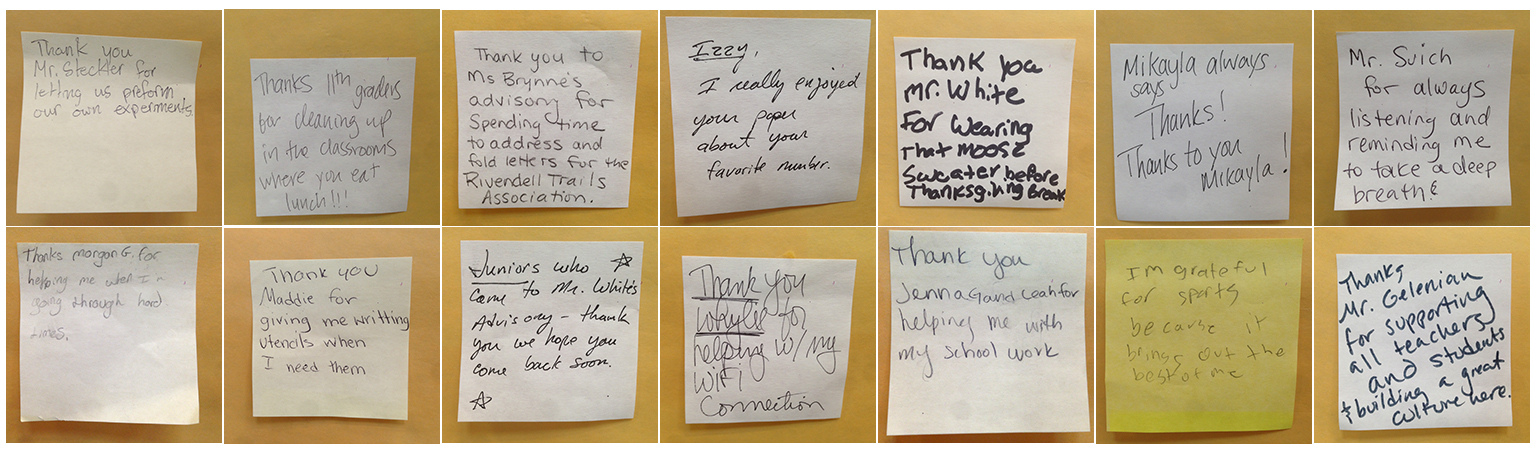 Thank you
Mr. Steckler for
letting us preform
our own experiments.
Thanks 11th graders
for cleaning up
in the classrooms
where you eat
lunch!!!
Thank you to
Ms Brynne's
advisory for
Spending time
to address and
fold letters for the
Rivendell Trails
Association.
Izzy,
I really enjoyed
your paper
about your
favorite number.
Thank you
Mr. White
For Wearing
That MOOSE
Sweater before
Thanksgiving Break
Mikayla always
says
Thanks!
Thanks to you
Mikayla!
Mr. Suich
for always
listening and
reminding me
to take a deep
breath!
Thanks morgan G. for
helping me when I'm
going through hard
times.
Thank you
Maddie for
giving me writting
utencils when
I need them
Juniors who
came to Mr. White's
Advisory - thank
you we hope you
come back soon.
Thank you
Whylie for
helping w/ my
WiFi
Connection
Thank you
Jenna G and Leah for
helping me with
my school work
Im grateful
for sports
because it
brings out the
best of me
Thanks
Mr. Gelenian
for supporting
all teachers
and students
& building a great
culture here.